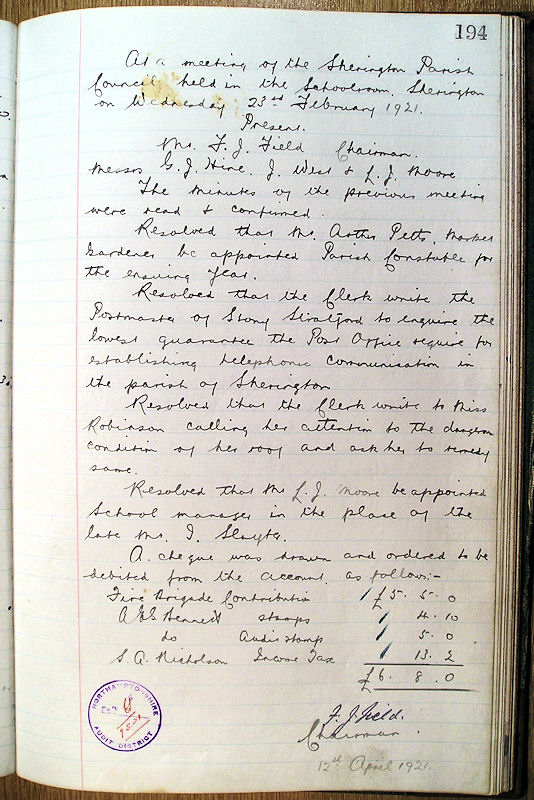 194
At a meeting of the Sherington Parish
Council held in the Schoolroom, Sherington
on Wednesday 23rd February 1921.
Present.
Mr. F. J. Field Chairman.
Messrs G. J. Hine, J. West & L. J. Moore
The minutes of the previous meeting
were read & confirmed.
Resolved that Mr. Arthur Petts, Market
Gardener be appointed Parish Constable for
the ensuing year.
Resolved that the Clerk write the
Postmaster of Stony Stratford to enquire the
lowest guarantee the Post Office require for
establishing telephonic communication in
the parish of Sherington
Resolved that the Clerk write to Miss
Robinson calling her attention to the dangerous
condition of her roof and ask her to remedy
same.
Resolved that Mr L. J. Moore be appointed
School manager in the place of the
late Mr. I. Slayter.
A cheque was drawn and ordered to be
debited from the account as follows:-
Fire Brigade Contribution £5. 5. 0
A & E Bennett stamps 4. 10
do Audit stamp 5. 0
S. A. Nicholson Income Tax 13. 2
£6. 8. 0
F. J. Field.
Chairman.
12th April 1921.
NORTHAMPTONSHIRE
AUDIT DISTRICT